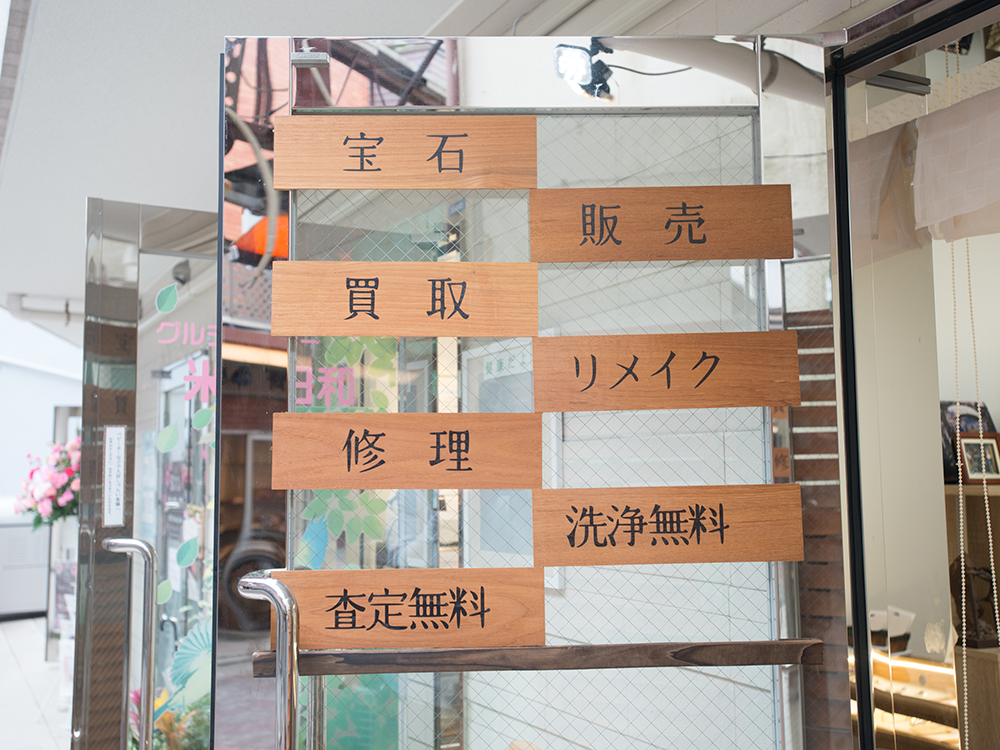 宝石
販売
買取
リメイク
修理
洗浄無料
査定無料
グル
米
日和